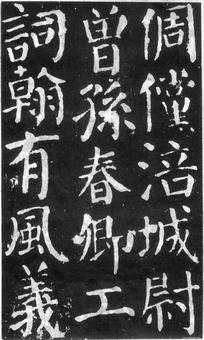 倜儻涪城尉
曾孫春卿工
詞翰有風義